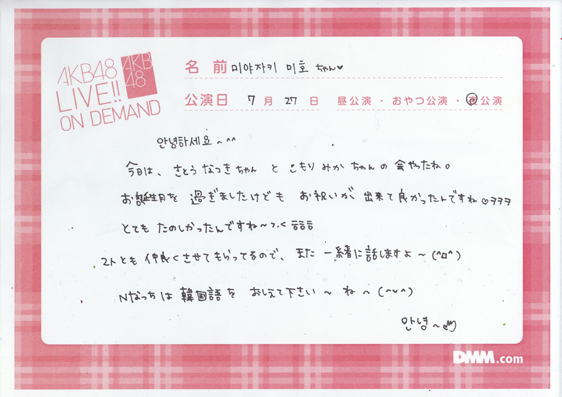 AKB48
LIVE!!
ON DEMAND
AKB
48
名 前 미야자키 미호 ちゃん♥
公演日 7 月 27 日 昼公演・おやつ公演・夜公演
안녕하세요~^^
今日は、さとう なつき ちゃん と こもり みか ちゃん の 会やったね。
お誕生日を 過ぎましたけども お祝いが 出来て良かったんですね♡ㅋㅋㅋ
とても たのしかったんですね~>.<
2人とも 仲良くさせてもらってるので、また 一緒に話しますよ~(^o^)
Nなっちは 韓国語を おしえて下さい~ ね~(^▽^)
안녕~
DMM.com